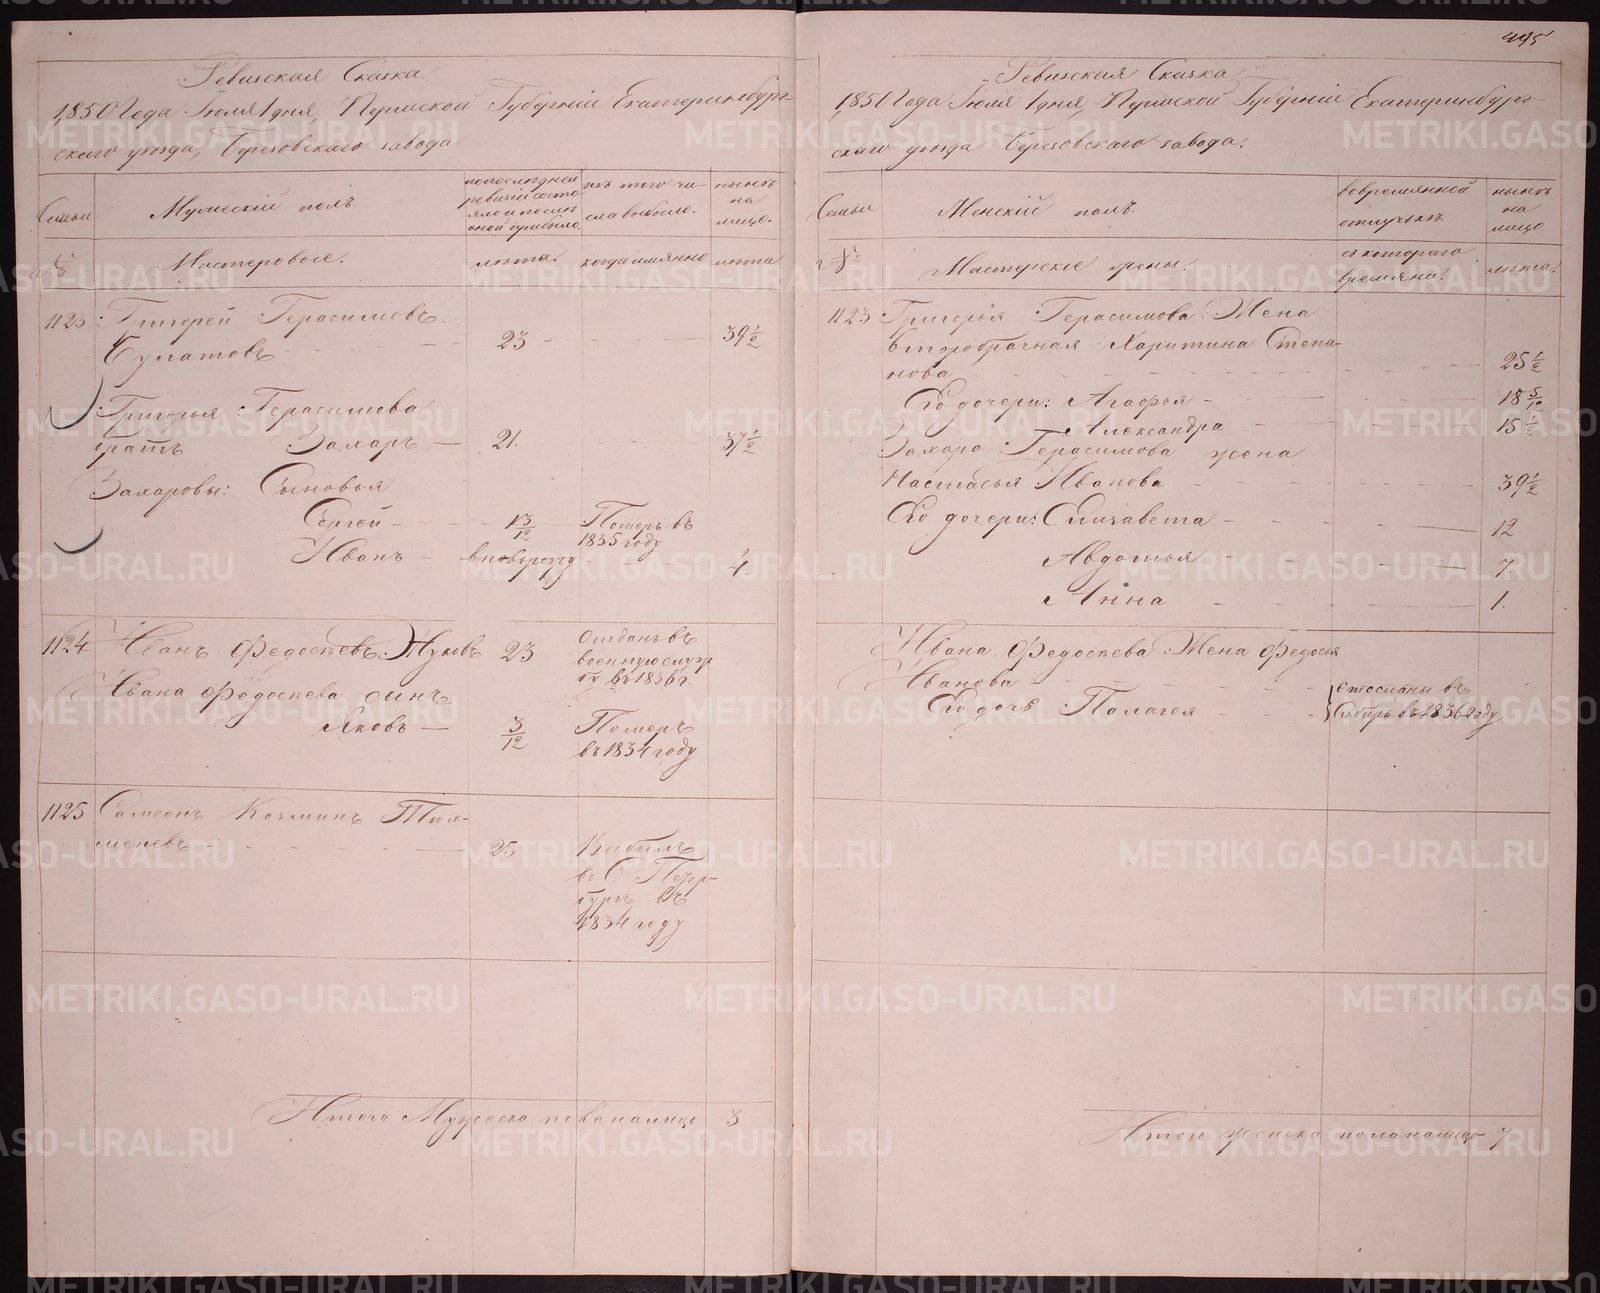 Ревизская Сказка
1850 Года Июля 1 дня, Пермской Губерніи Екатеринбург-
скаго уезда, Березовскаго завода
Семьи
Мужескій полъ.
по последней
ревизіи состо
яло и после
оной прибыло
изъ того чи-
сла выбыло.
ныне
на
лицо.
№
Мастеровые.
лета.
когда имянно
лета
1123
Григорей Герасимовъ
Булатовъ
23
39 1/2
Григорья Герасимова
братъ Захаръ
21.
37 1/2
Захаровы: Сыновья
Сергей
1 3/12
Померъ въ
1835 году
Иванъ
вновьрожд
4.
1124
Иванъ Федосеевъ Жуковъ
23
Отданъ въ
военную служ
бу въ 1836 г.
Ивана Федосеева сынъ
Яковъ
3/12
Померъ
въ 1834 году
1125
Самсонъ Козминъ Тюл-
меневъ
25
въ С. Петер-
бургъ въ
1834 году
Итого Мужеска пола налицо 3
495
Ревизская Сказка
1850 Года Июля 1 дня, Пермской Губерніи Екатеринбург-
скаго уезда Березовскаго завода.
Семьи
Женскій полъ.
во временной
отлучке
ныне
на
лицо
№
Мастерскіе жены.
съ котораго
времяни.
лета.
1123
Григорья Герасимова Жена
второбрачная Харитина Степа-
нова
25 1/2
Его дочери: Агафья
18 5/12
Александра
15 1/2
Захара Герасимова жена
Настасья Иванова
39 1/2
Его дочери: Елизавета
12
Авдотья
7
Анна
1.
Ивана Федосеева Жена Федосья
Иванова
Его дочь Палагея
отосланы въ
Сибирь въ 1836 году
Итого женска пола налицо 7
METRIKI.GASO-URAL.RU